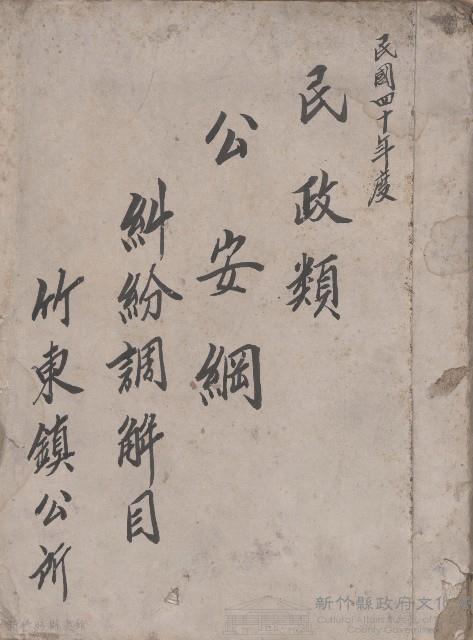 民國四十年度
民政類
公安綱
糾紛調解目
竹東鎮公所
新竹縣政府文化
Cultural Affairs Bureau of
County Government